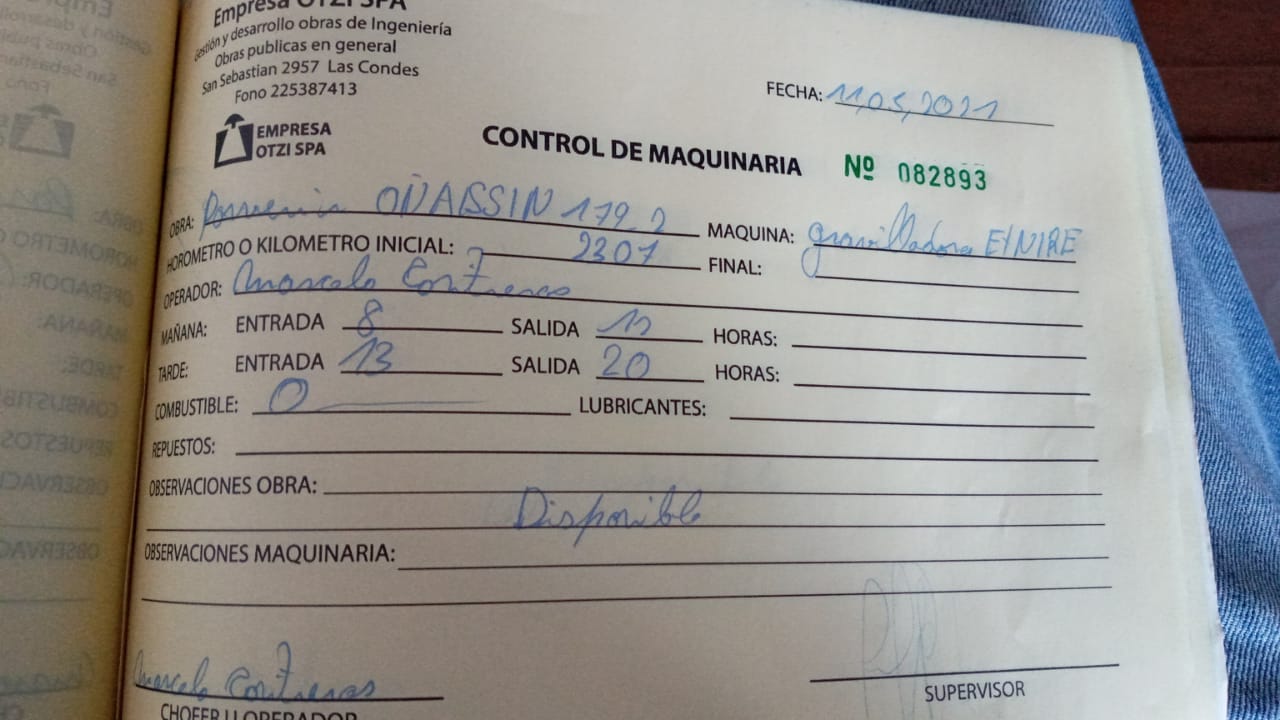 Empresa OTZI SPA
Gestión y desarrollo obras de Ingeniería
Obras publicas en general
San Sebastian 2957 Las Condes
Fono 225387413
EMPRESA
OTZI SPA
FECHA: 11,05,2021
CONTROL DE MAQUINARIA Nº 082893
OBRA: OÑASSIN 179-2 MAQUINA: gravilladora
HOROMETRO O KILOMETRO INICIAL: 2307 FINAL:
OPERADOR: Marcelo Contreras
MAÑANA: ENTRADA 8 SALIDA 12 HORAS:
TARDE: ENTRADA 13 SALIDA 20 HORAS:
COMBUSTIBLE: 0 LUBRICANTES:
REPUESTOS:
OBSERVACIONES OBRA:
Disponible
OBSERVACIONES MAQUINARIA:
Marcelo Contreras
CHOFER U OPERADOR
SUPERVISOR